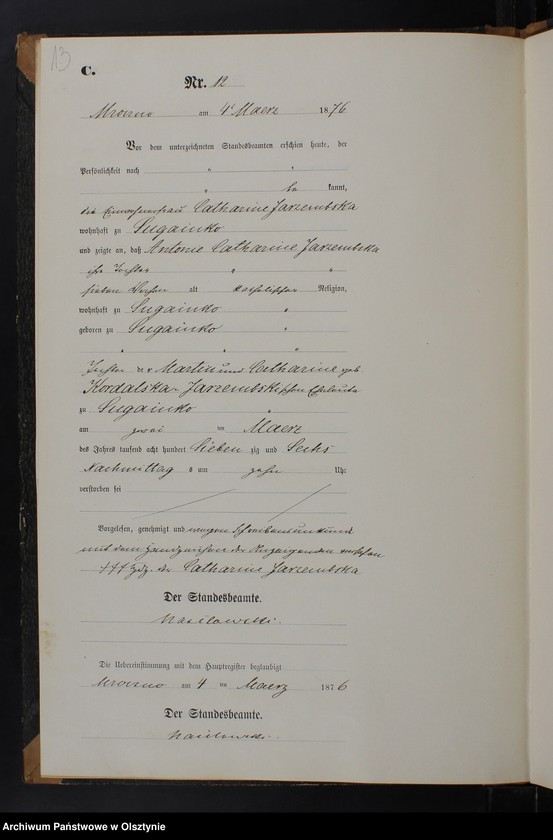 13
C.
Nr. 12
Mroczno am 4 Maerz 1876
Vor dem unterzeichneten Standesbeamten erschien heute, der
Persönlichkeit nach " "
" be kannt,
die Einwohnerfrau Catharine Jarzembska
wohnhaft zu Sugainko
und zeigte an, daß Antonie Catharine Jarzembska
ihre Tochter " "
sieben Wochen alt katholischer Religion,
wohnhaft zu Sugainko "
geboren zu Sugainko "
" " "
Tochter der Martin und Catharine geb
Kordalska Jarzembski'schen Eheleute
zu Sugainko "
am zwei ten Maerz
des Jahres tausend acht hundert Sieben zig und Sechs
Nachmittag s um zehn Uhr
verstorben sei
Vorgelesen, genehmigt und wegen Schreibensunkunde
mit dem Handzeichen der Anzeigenden versehen
+++ Hdz. der Catharine Jarzembska
Der Standesbeamte.
Die Uebereinstimmung mit dem Hauptregister beglaubigt
Mroczno am 4 ten Maerz 1876
Der Standesbeamte.
Archiwum Państwowe w Olsztynie